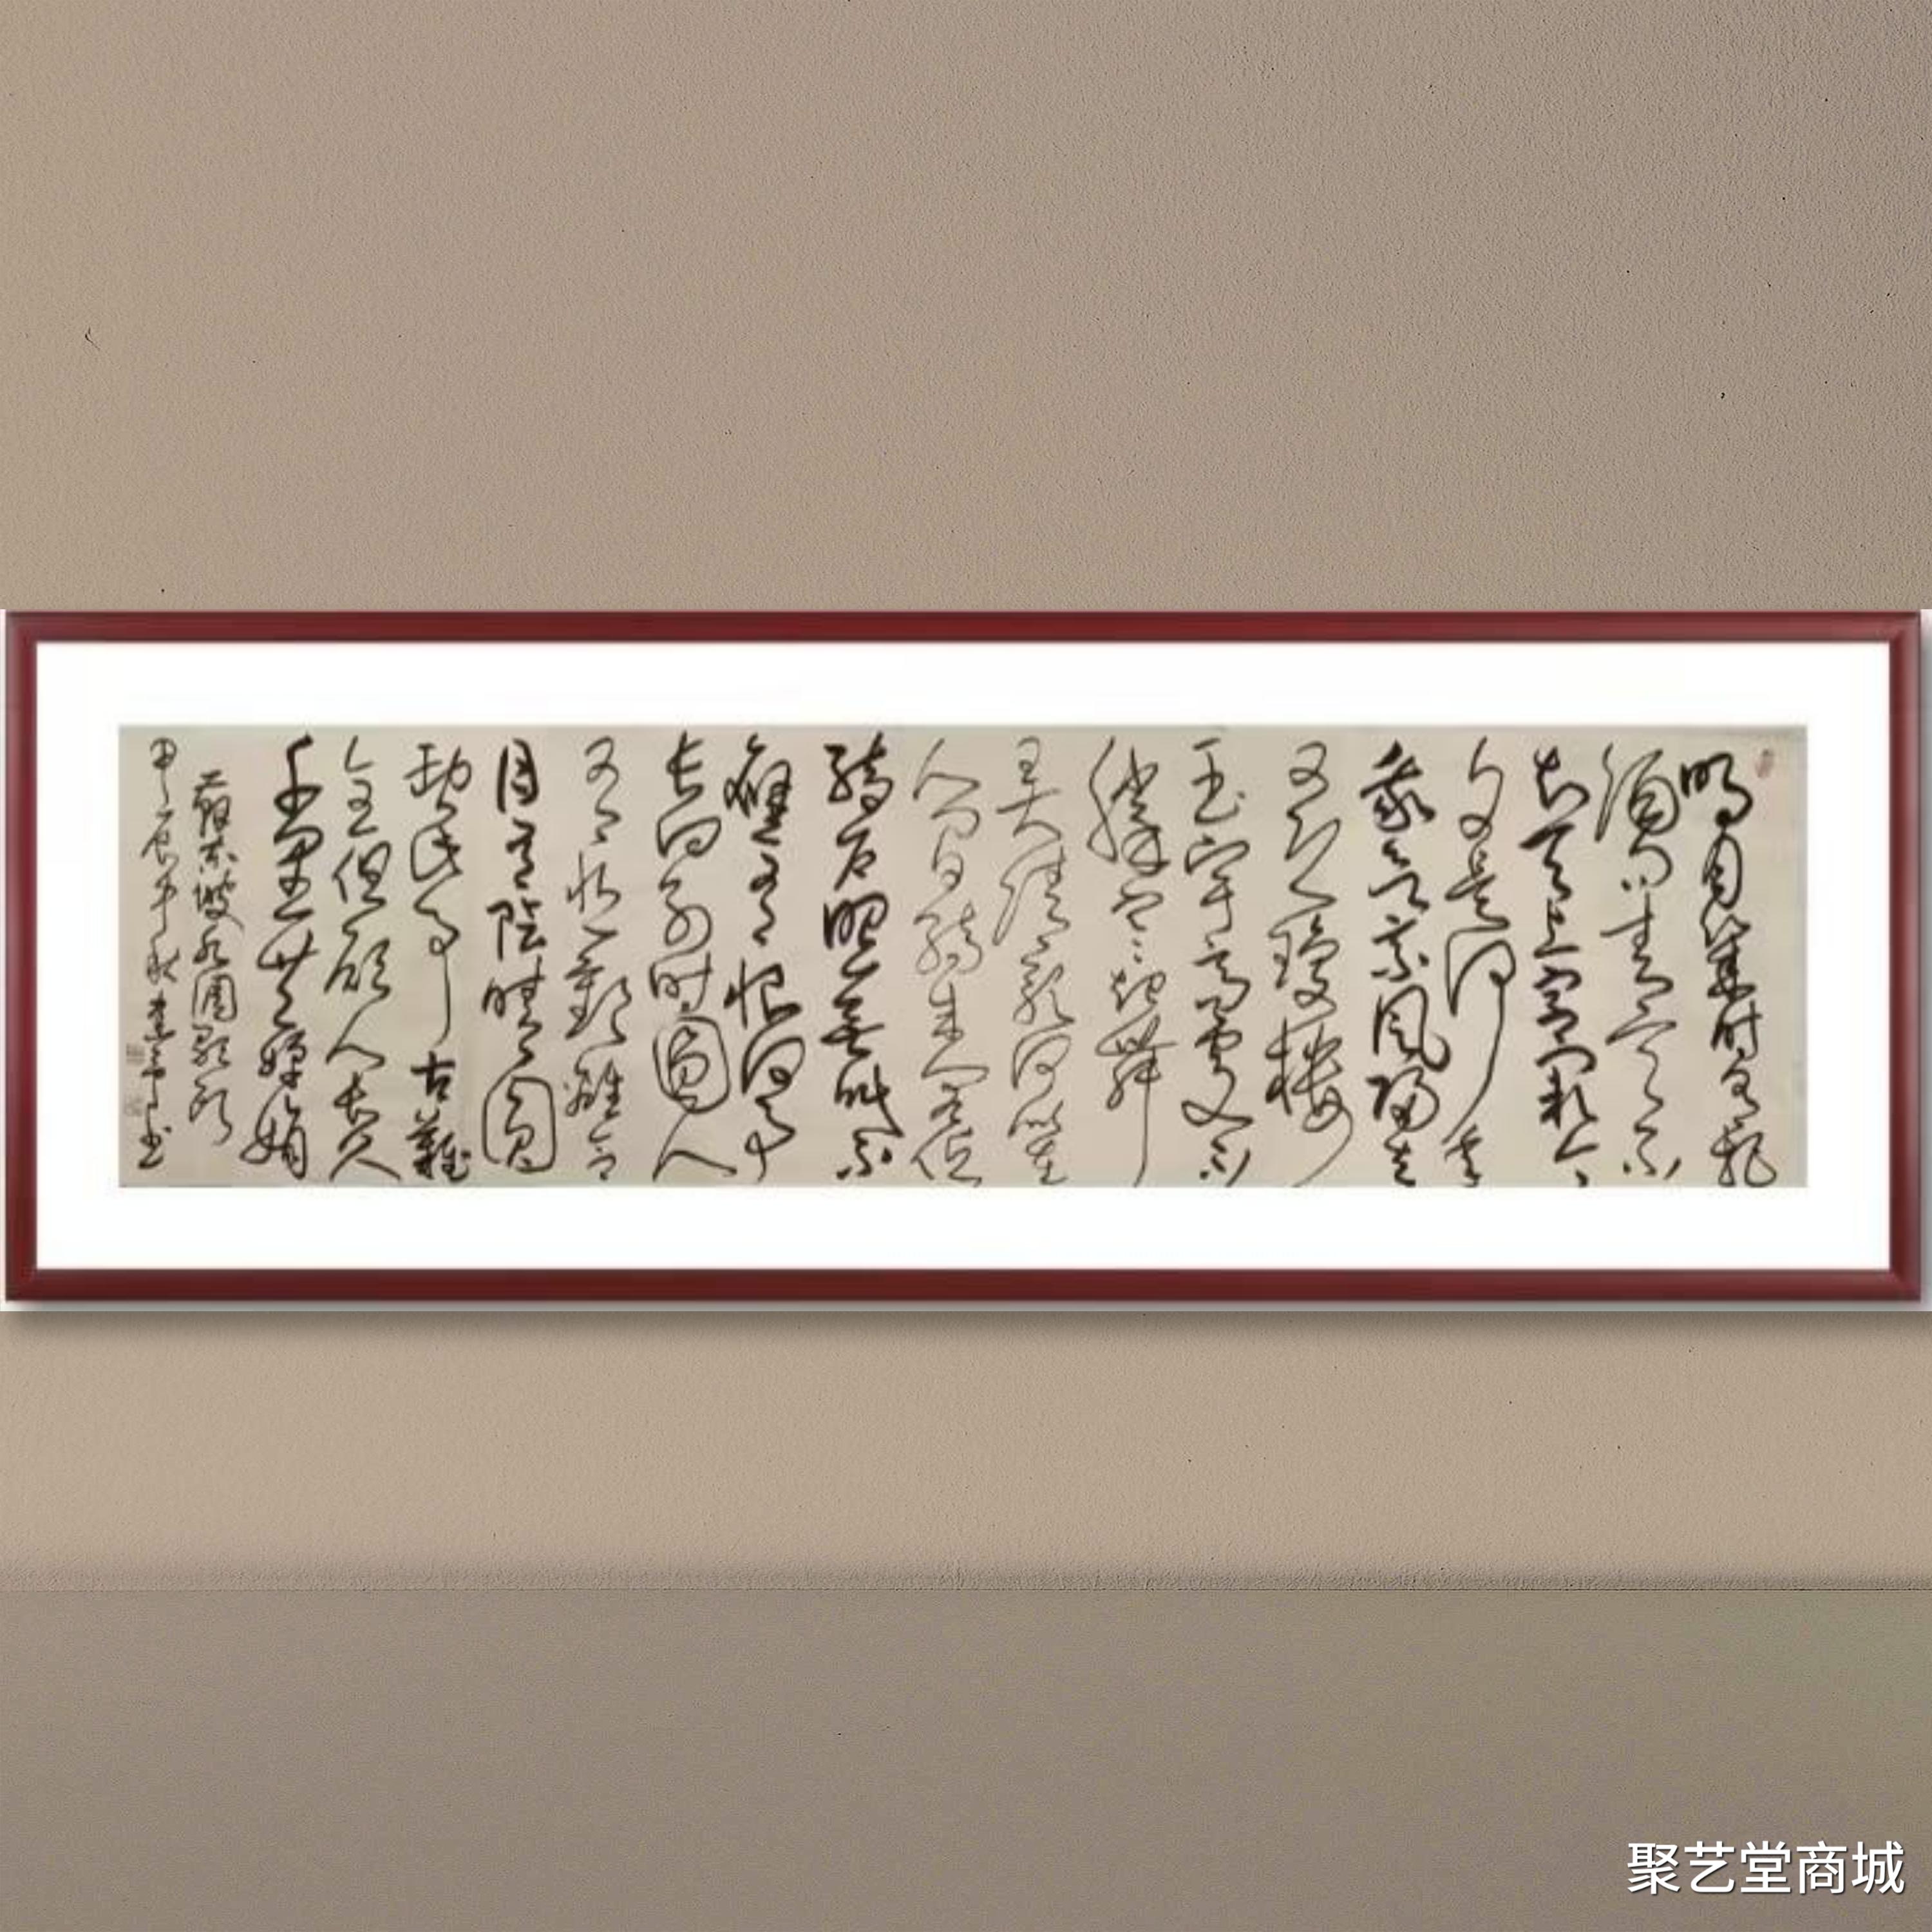 明月幾时有把
酒问青天不
知天上宫阙今
夕是何年
我欲乘风归去
又恐琼楼
玉宇高处不
胜寒起舞
弄清影何似在
人间转朱阁低
绮户照无眠不
应有恨何事
长向别时圆人
有悲欢離合
月有陰晴圆
缺此事古難
全但願人长久
千里共婵娟
苏东坡水调歌头
甲辰中秋书
聚艺堂商城